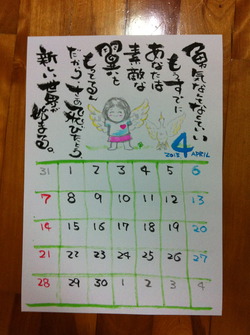 勇気なんてなくていい
もうすでに
あなたは
素敵な
翼を
もってるん
だから
飛びたとう
新しい世界が
始まる。
2013 4 APRIL
31 1 2 3 4 5 6
7 8 9 10 11 12 13
14 15 16 17 18 19 20
21 22 23 24 25 26 27
28 29 30 1 2 3 4